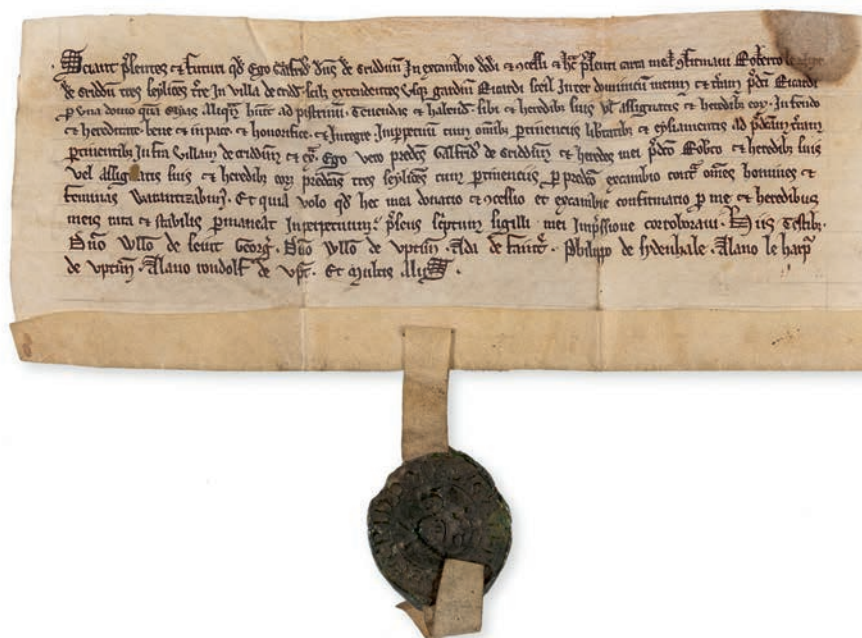 Sciant p̄sentes et futuri qd̄ Ego Galfrid̄ dn̄s de Criddon̄ In excambio dedi et ꝯcessi et hac p̄senti carta mea ꝯfirmavi Roberto
de Criddon̄ tres seyliōes t̄re In villa de Cridd̄ se extendentes usq̨ gardinū Ricardi Inter dominicū meum et t̄ram p̄dc̄i Ricardi
ꝑ una domo quā aliqn̄ huit ad pistrinū. Tenendas et habend̄. sibi et heredib̄ suis vl̄ assignatis et heredib̄ eoꝝ. In feodo
et hereditate. bene et in pace. et honorifice. et Integre. Inperpetuū cum om̄ib̄ pertinenciis libtatib̄ et eysiamentis ad p̄dc̄am t̄ram
pertinentib̄ Infra villam de Criddon̄ et ext̄. Ego vero predc̄s Galfrid̄ de Criddon̄ et heredes mei p̄dc̄o Rob̄to et heredib̄ suis
vel assignatis suis et heredib̄ eoꝝ predc̄as tres seyliōes cum pertinenciis ꝑ predc̄o excambio cont̄ om̄es homines et
feminas Warantizabim̄. Et quia volo qd̄ hec mea donacio et ꝯcessio et excambie confirmacio ꝑ me et heredibus
meis rata et stabilis ꝑmaneat Inperpetuum. p̄sens sc̄ptum sigilli mei Imp̄ssione corroboravi. Hiis Testib̄.
Dn̄o Will̄o de Georḡ. Dn̄o Will̄o de Uptoū. Adā de Philippo de Hydenhale. Alano le harp̄
de Uptoū. Alano rondolf̄ de Upt̄. Et Multis Aliis.